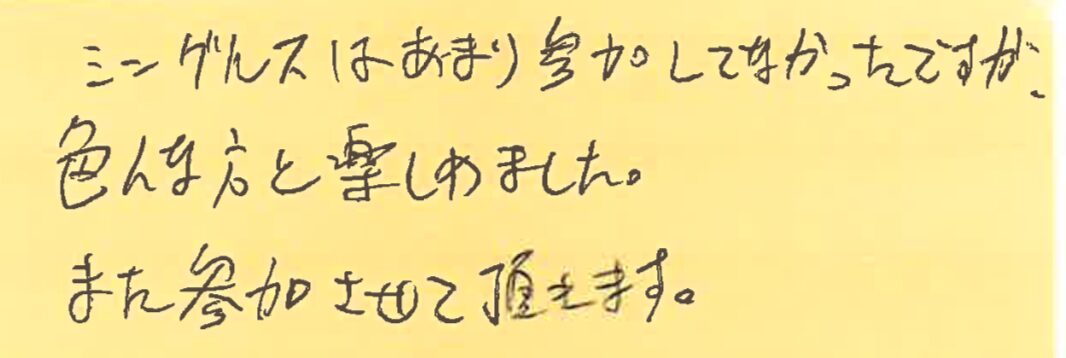 シングルスはあまり参加してなかったですが、
色んな方と楽しめました。
また参加させて頂えます。